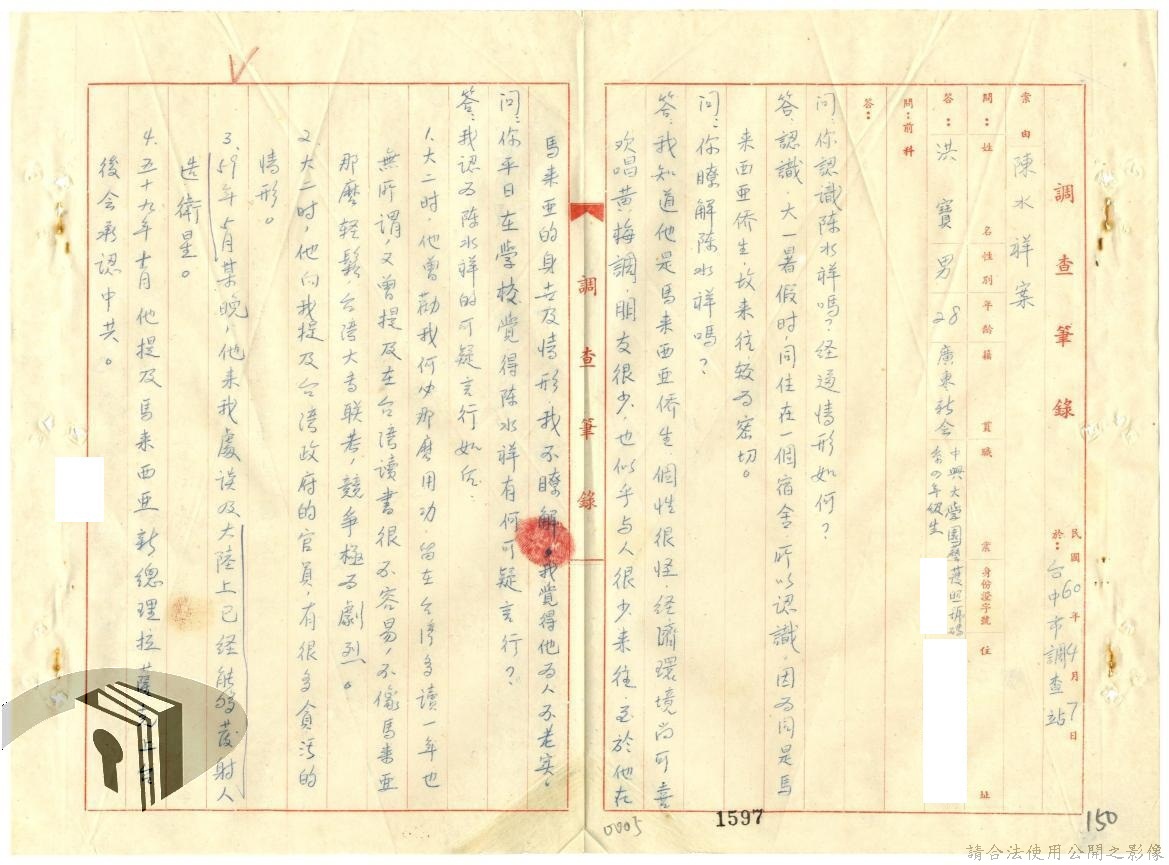 調查筆錄
民國60年4月7日
於：台中市調查站
案由 陳水祥案
問：姓名 性別 年齡 籍貫 職業 身份證字號 住址
答：洪寶 男 28 廣東新会 中興大學園藝系四年級生 護照號碼
問：前科
答：
問：你認識陳水祥嗎？经過情形如何？
答：認識，大一暑假时，同住在一個宿舍，所以認識，因为同是馬
来西亚侨生，故来往較为密切。
問：你瞭解陈水祥嗎？
答：我知道他是馬来西亚侨生，個性很怪，经濟環境尚可，喜
欢唱黄梅調，朋友很少，也似乎与人很少来往，至於他在
調查筆錄
馬来亚的身世及情形，我不瞭解。我覺得他为人不老实。
问：你平日在学校覺得陈水祥有何可疑言行？
答：我认为陈水祥的可疑言行如后：
1.大二时，他曾劝我何必那麽用功，留在台湾多读一年也
無所謂，又曾提及在台湾读書很不容易，不像馬来亚
那麽轻鬆，台湾大专联考，競争極为劇烈。
2.大二时，他向我提及台湾政府的官員，有很多貪污的
情形。
3.59年5月某晚，他来我處谈及大陸上已经能夠發射人
造衛星。
4.五十九年十月他提及馬来西亚新總理拉薩克上台
後会承認中共。
0005
1597
150
請合法使用公開之影像